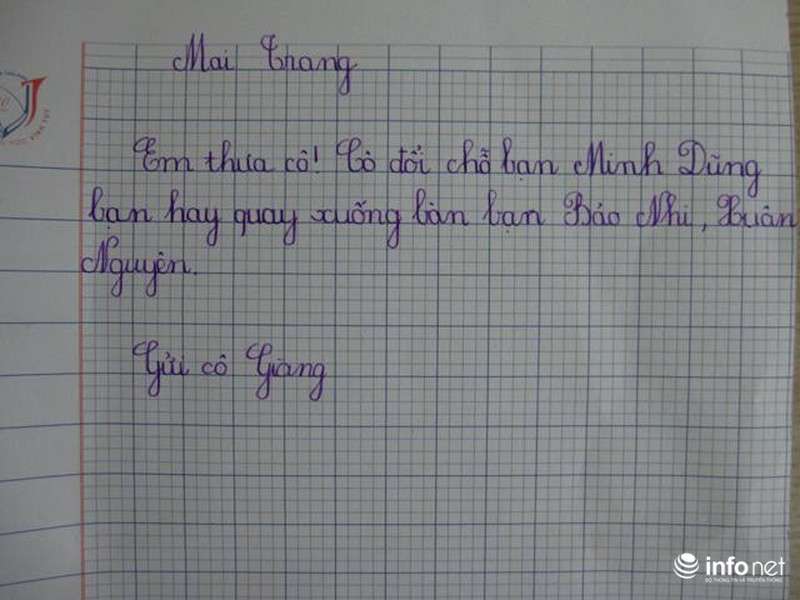 Mai Trang
Em thưa cô! Cô đổi chỗ bạn Minh Dũng
bạn hay quay xuống bàn bạn Bảo Nhi, Xuân
Nguyên.
Gửi cô Giang
infonet
BỘ THÔNG TIN VÀ TRUYỀN THÔNG